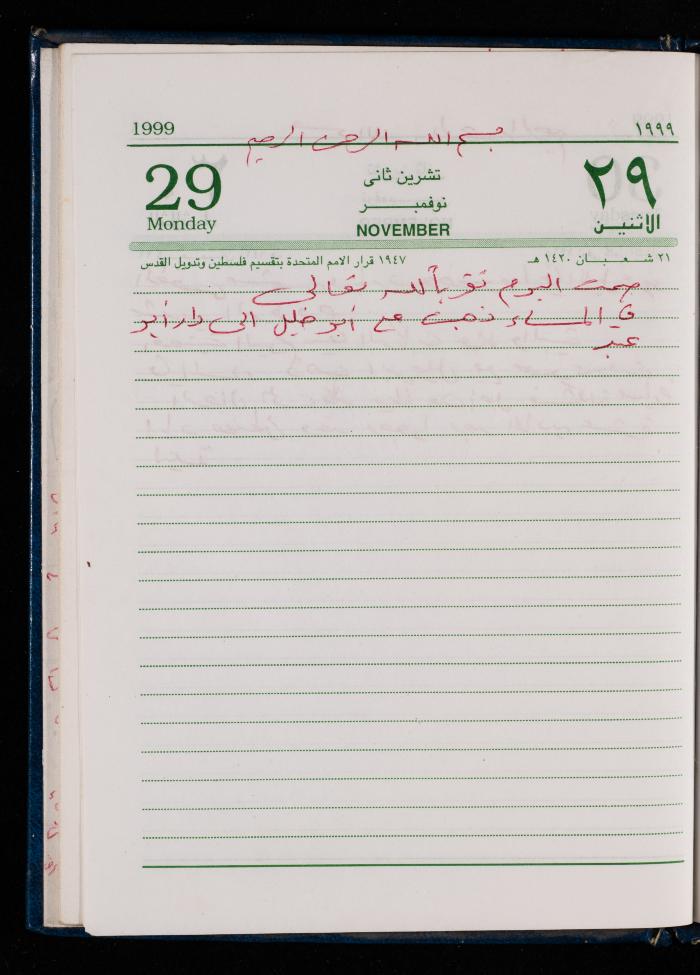 1999
١٩٩٩
بسم الله الرحمن الرحيم
29
Monday
تشرين ثانى
نوفمبر
NOVEMBER
٢٩
الاثنين
٢١ شعبان ١٤٢٠ هـ
١٩٤٧ قرار الامم المتحدة بتقسيم فلسطين وتدويل القدس
صمت اليوم تقرباً لله تعالى
في المساء ذهبت مع أبو خليل الى دار أبو
عبد